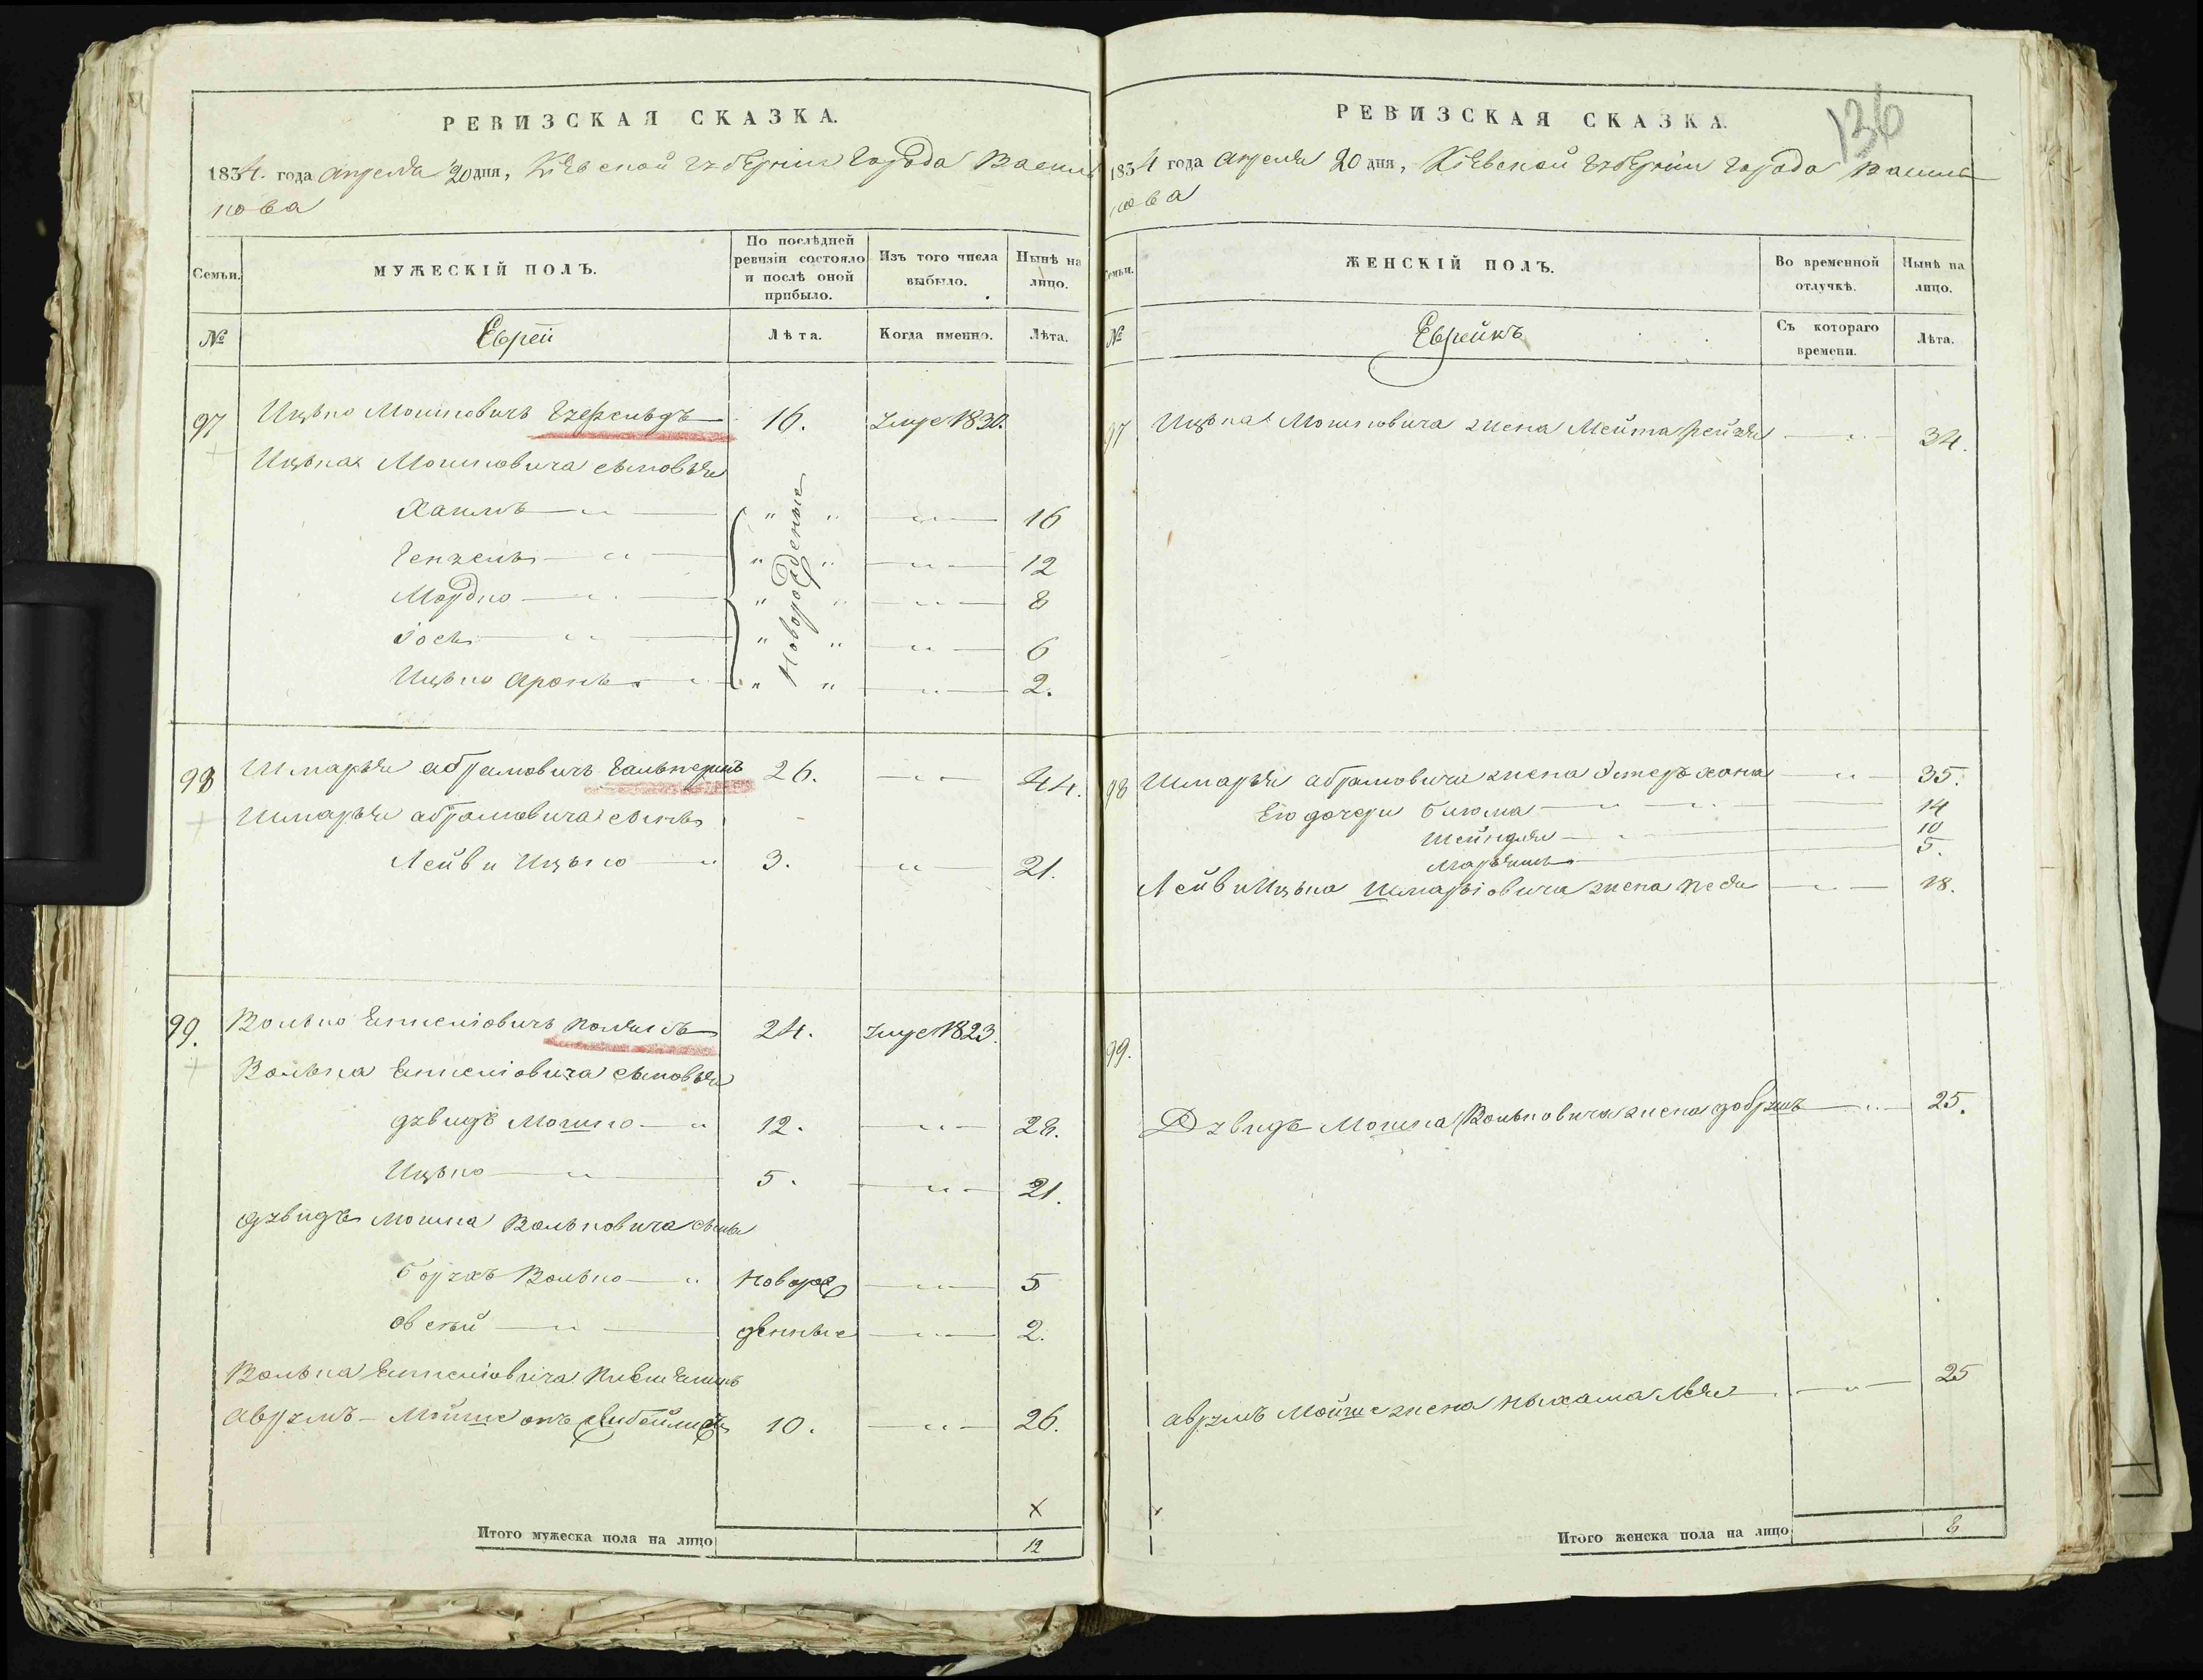 РЕВИЗСКАЯ СКАЗКА.
1834. года апреля 20 дня, Кіевской губерніи города Василь
кова
Семьи.
МУЖЕСКІЙ ПОЛЪ.
По послѣдней ревизіи состояло и послѣ оной прибыло.
Изъ того числа выбыло.
Нынѣ на лицо.
№
Еврей
Лѣта.
Когда именно.
Лѣта.
97 Ицько Мошковичъ 16. умре 1830.
Ицька Мошковича сыновья
Новорожденные
Хаимъ " " 16
Гензель " " 12
Мордко " " 8
Іось " " 6
Ицько Аронъ " " 2.
98 Шмарья Абрамовичъ Гальперинъ 26. 44.
Шмарья Абрамовича сынъ
Лейви Ицько 3. 21.
99. Волько 24. умре 1823.
Волька сыновья
Дувидъ Мошко 12. 28.
Ицько 5. 21.
Дувидъ Мошка Вольковича сынъ
Борухъ Волько Новорож 5
Овсий денные 2.
Волька
Аврумъ-Мойше онъ 10. 26.
х
Итого мужеска пола на лицо 12
РЕВИЗСКАЯ СКАЗКА.
136
1834 года апреля 20 дня, Кіевской губерніи города Василь
кова
Семьи.
ЖЕНСКІЙ ПОЛЪ.
Во временной отлучкѣ.
Нынѣ на лицо.
№
Еврейкъ
Съ котораго времени.
Лѣта.
97 Ицька Мошковича жена Рейзя 34.
98 Шмарья Абрамовича жена Эстеръ Хана 35.
Его дочери Блюма 14
Шейндля 10
Марьямъ 5.
Лейви Ицька Шмарьіовича жена Песя 18.
99.
Дувидъ Мошка Вольковича жена 25.
Аврумъ Мойше жена Ныхама Лея 25
х
Итого женска пола на лицо 8